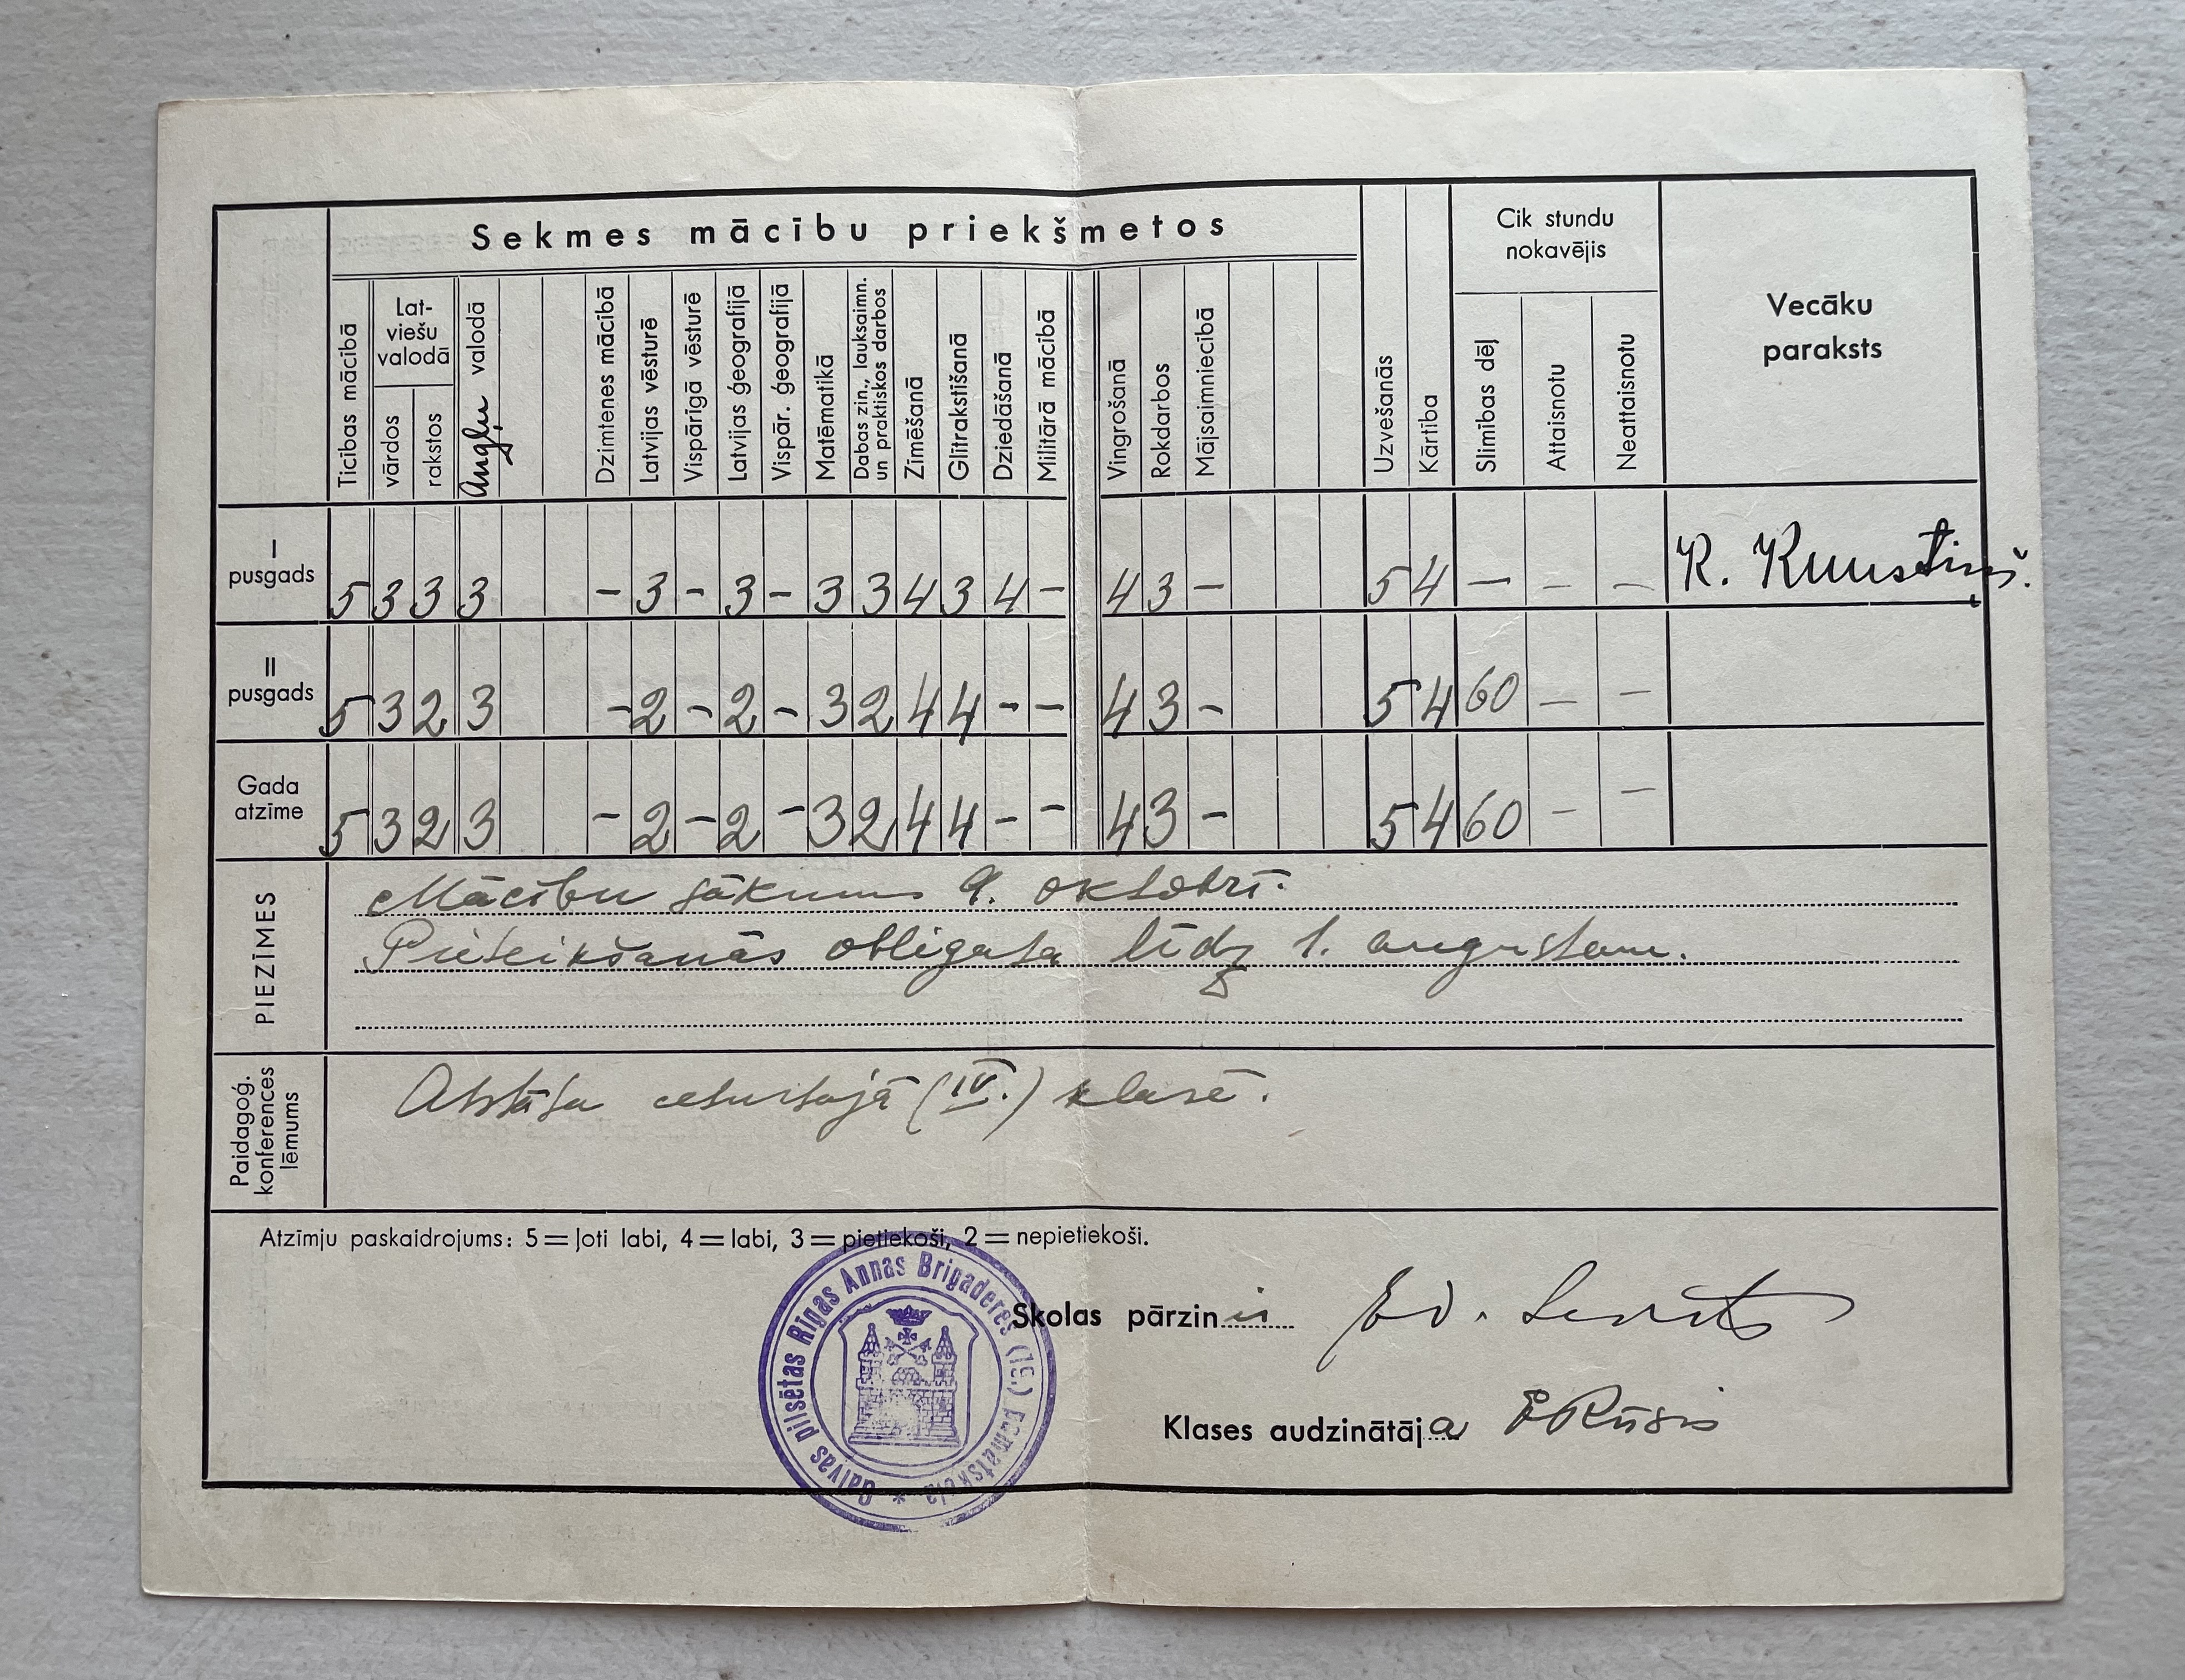 Sekmes mācību priekšmetos
Cik stundu
nokavējis
Vecāku
paraksts
Ticības mācībā
Lat-
viešu
valodā
vārdos
rakstos
Angļu valodā
Dzimtenes mācībā
Latvijas vēsturē
Vispārīgā vēsturē
Latvijas ģeografijā
Vispār. ģeografijā
Matēmatikā
Dabas zin., lauksaimn.
un praktiskos darbos
Zīmēšanā
Glītrakstīšanā
Dziedāšanā
Militārā mācībā
Vingrošanā
Rokdarbos
Mājsaimniecībā
Uzvešanās
Kārtība
Slimības dēļ
Attaisnotu
Neattaisnotu
I
pusgads
5 3 3 3 – 3 – 3 – 3 3 4 3 4 – 4 3 – 5 4 – – –
II
pusgads
5 3 2 3 – 2 – 2 – 3 2 4 4 – – 4 3 – 5 4 60 – –
Gada
atzīme
5 3 2 3 – 2 – 2 – 3 2 4 4 – – 4 3 – 5 4 60 – –
PIEZĪMES
Mācību sākums 9. oktobrī.
Pieteikšanās obligata līdz 1. augustam.
Paidagoģ.
konferences
lēmums
Atstāta ceturtajā (IV.) klasē.
Atzīmju paskaidrojums: 5 = ļoti labi, 4 = labi, 3 = pietiekoši, 2 = nepietiekoši.
Galvas pilsētas Rīgas Annas Brigaderes (15.) pamatskola *
Skolas pārzinis Ed.
Klases audzinātāja E Rūsis